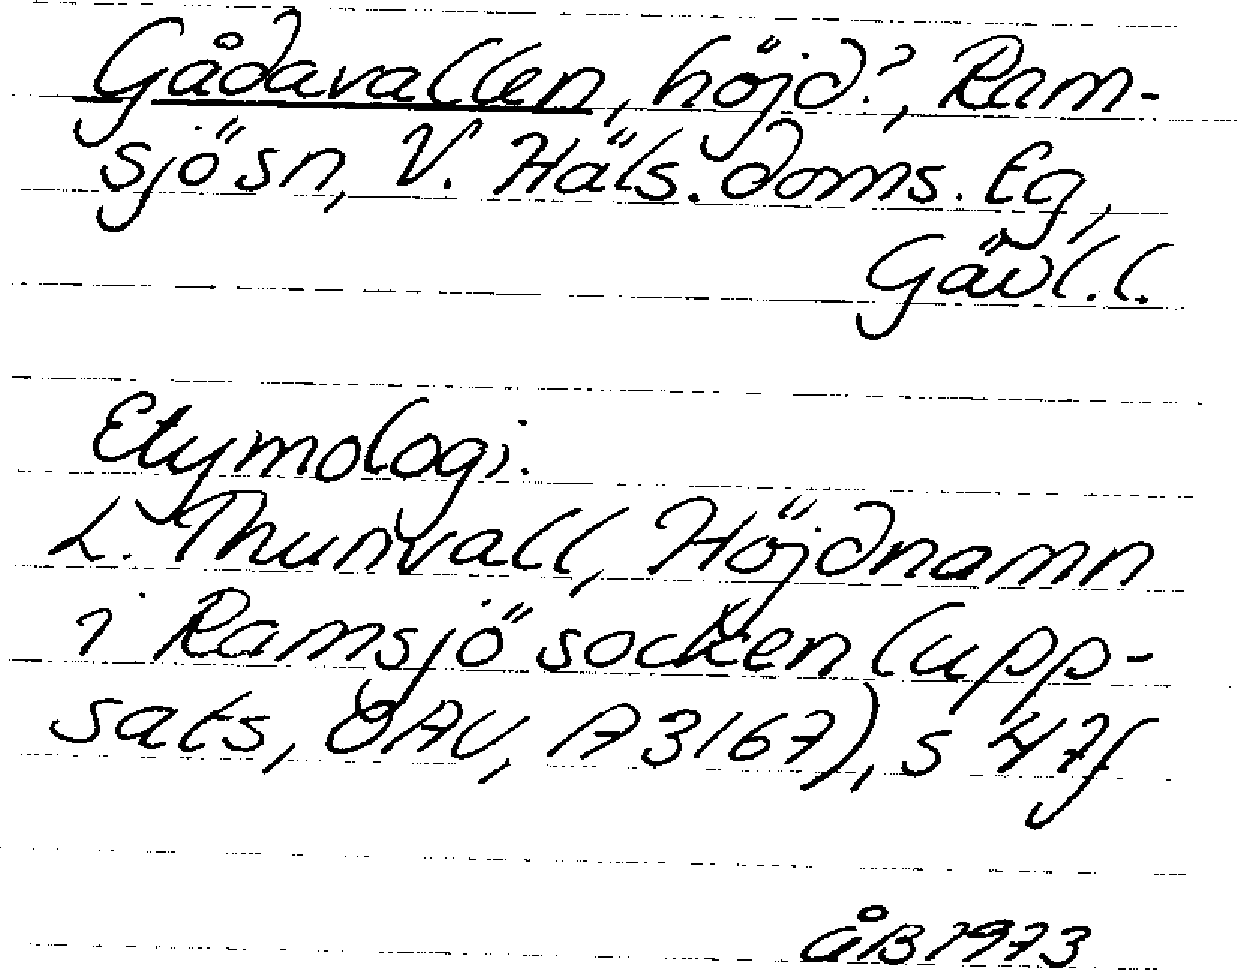 Gådavallen, höjd?, Ram-
sjö sn, V. Häls. doms. tg,
Gävl.l.
Etymologi.
L. Thunvall, Höjdnamn
i Ramsjö socken (upp-
sats, OAU, A3167), s 47f
åB 1973